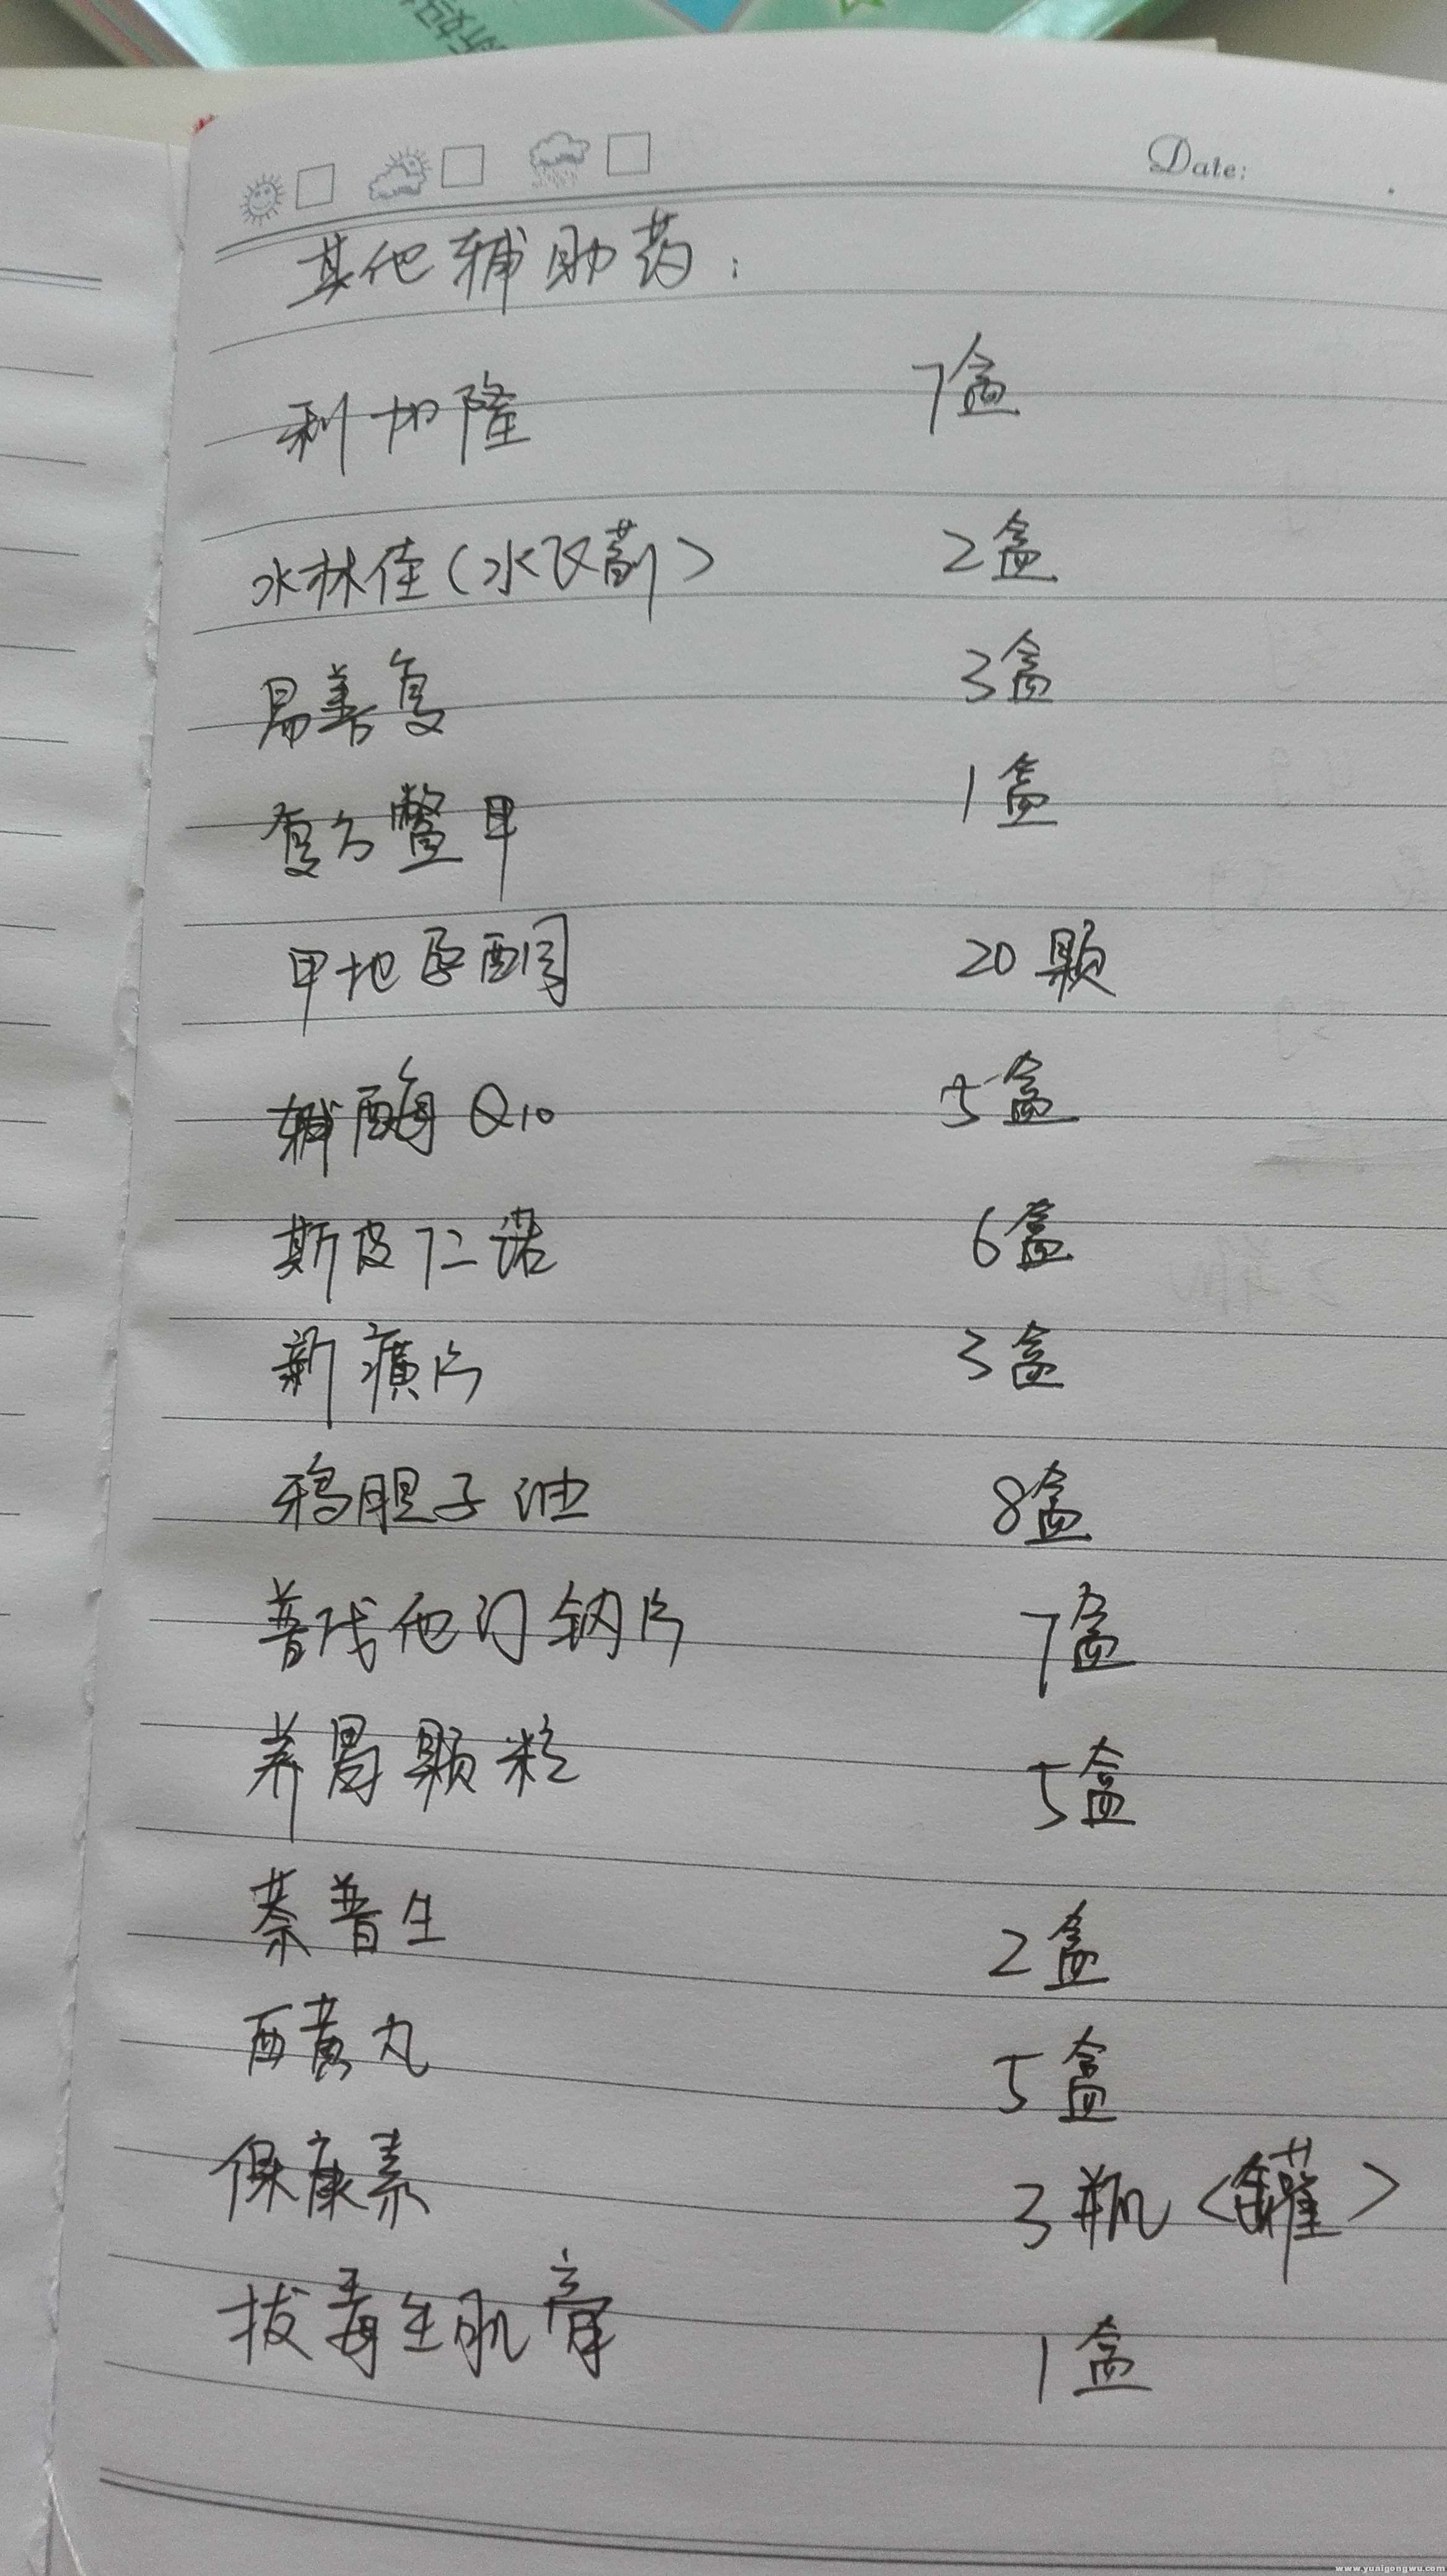 Date:
其他辅助药：
利加隆 7盒
水林佳（水飞蓟） 2盒
易善复 3盒
复方鳖甲 1盒
甲地孕酮 20颗
辅酶Q10 5盒
斯皮仁诺 6盒
新癀片 3盒
鸦胆子油 8盒
普伐他汀钠片 7盒
养胃颗粒 5盒
萘普生 2盒
西黄丸 5盒
保康素 3瓶<罐>
拔毒生肌膏 1盒
www.yuaigongwu.com